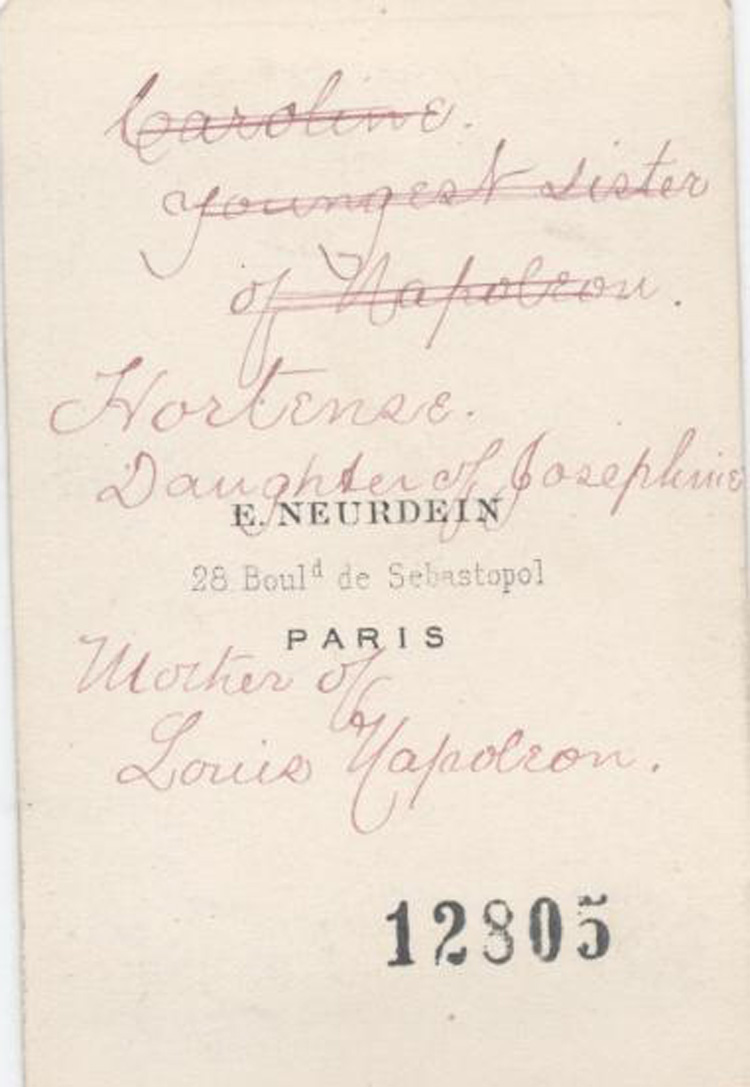 Caroline.
youngest sister
of Napoleon.
Hortense.
Daughter of Josephine
E. NEURDEIN
28 Bould de Sebastopol
PARIS
Mother of
Louis Napoleon.
12805